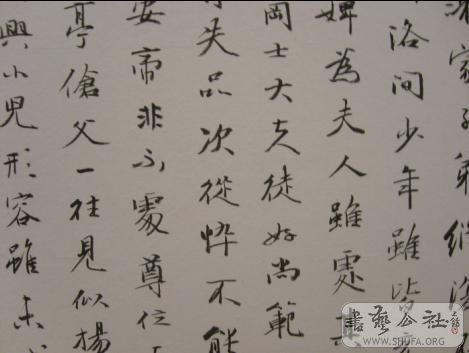 家子弟縱
洛間少年雖皆
婢為夫人雖處
岡士大夫徒好尚範
失品次從悴不能
安帝非不處尊位
亭傖父一往見似揚
興小兒形容雖未
書藝公社
WWW.SHUFA.ORG